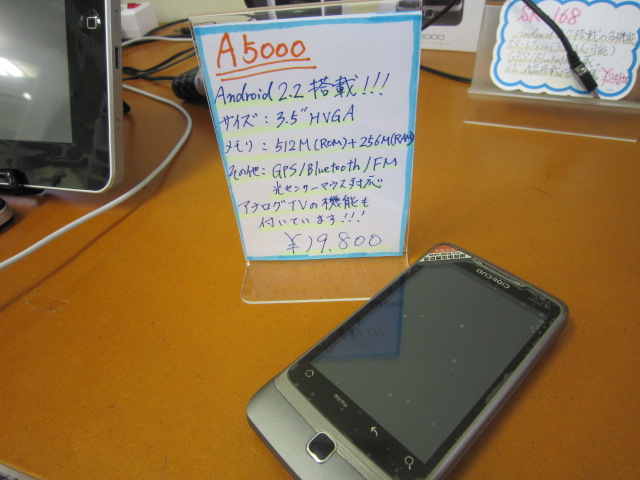 A5000
Android 2.2 搭載!!!
サイズ: 3.5" HVGA
メモリ: 512M(ROM)+256M(RAM)
その他: GPS/Bluetooth/FM
光センサーマウス対応
アナログTVの機能も
付いています!!!
¥19.800
5000
168
ANDROID
menu